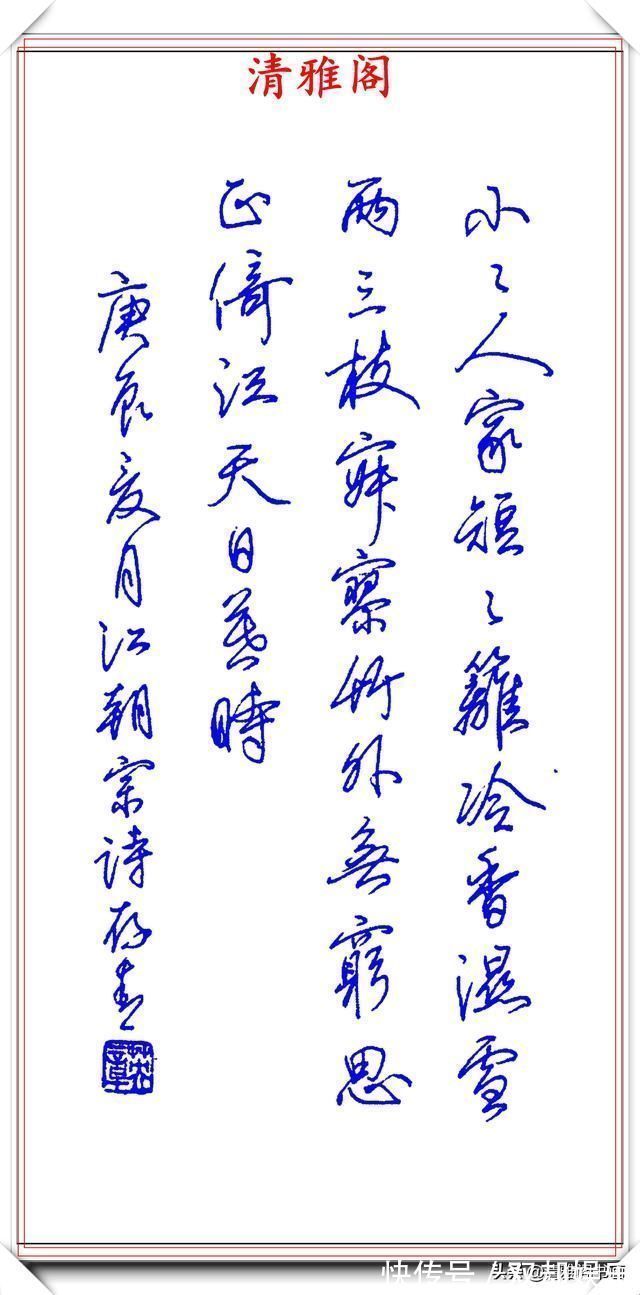 清雅阁
小〻人家短〻籬冷香濕雪
兩三枝寂寥竹外無窮思
正倚江天日暮時
庚辰夏月江朝宗詩
快传号